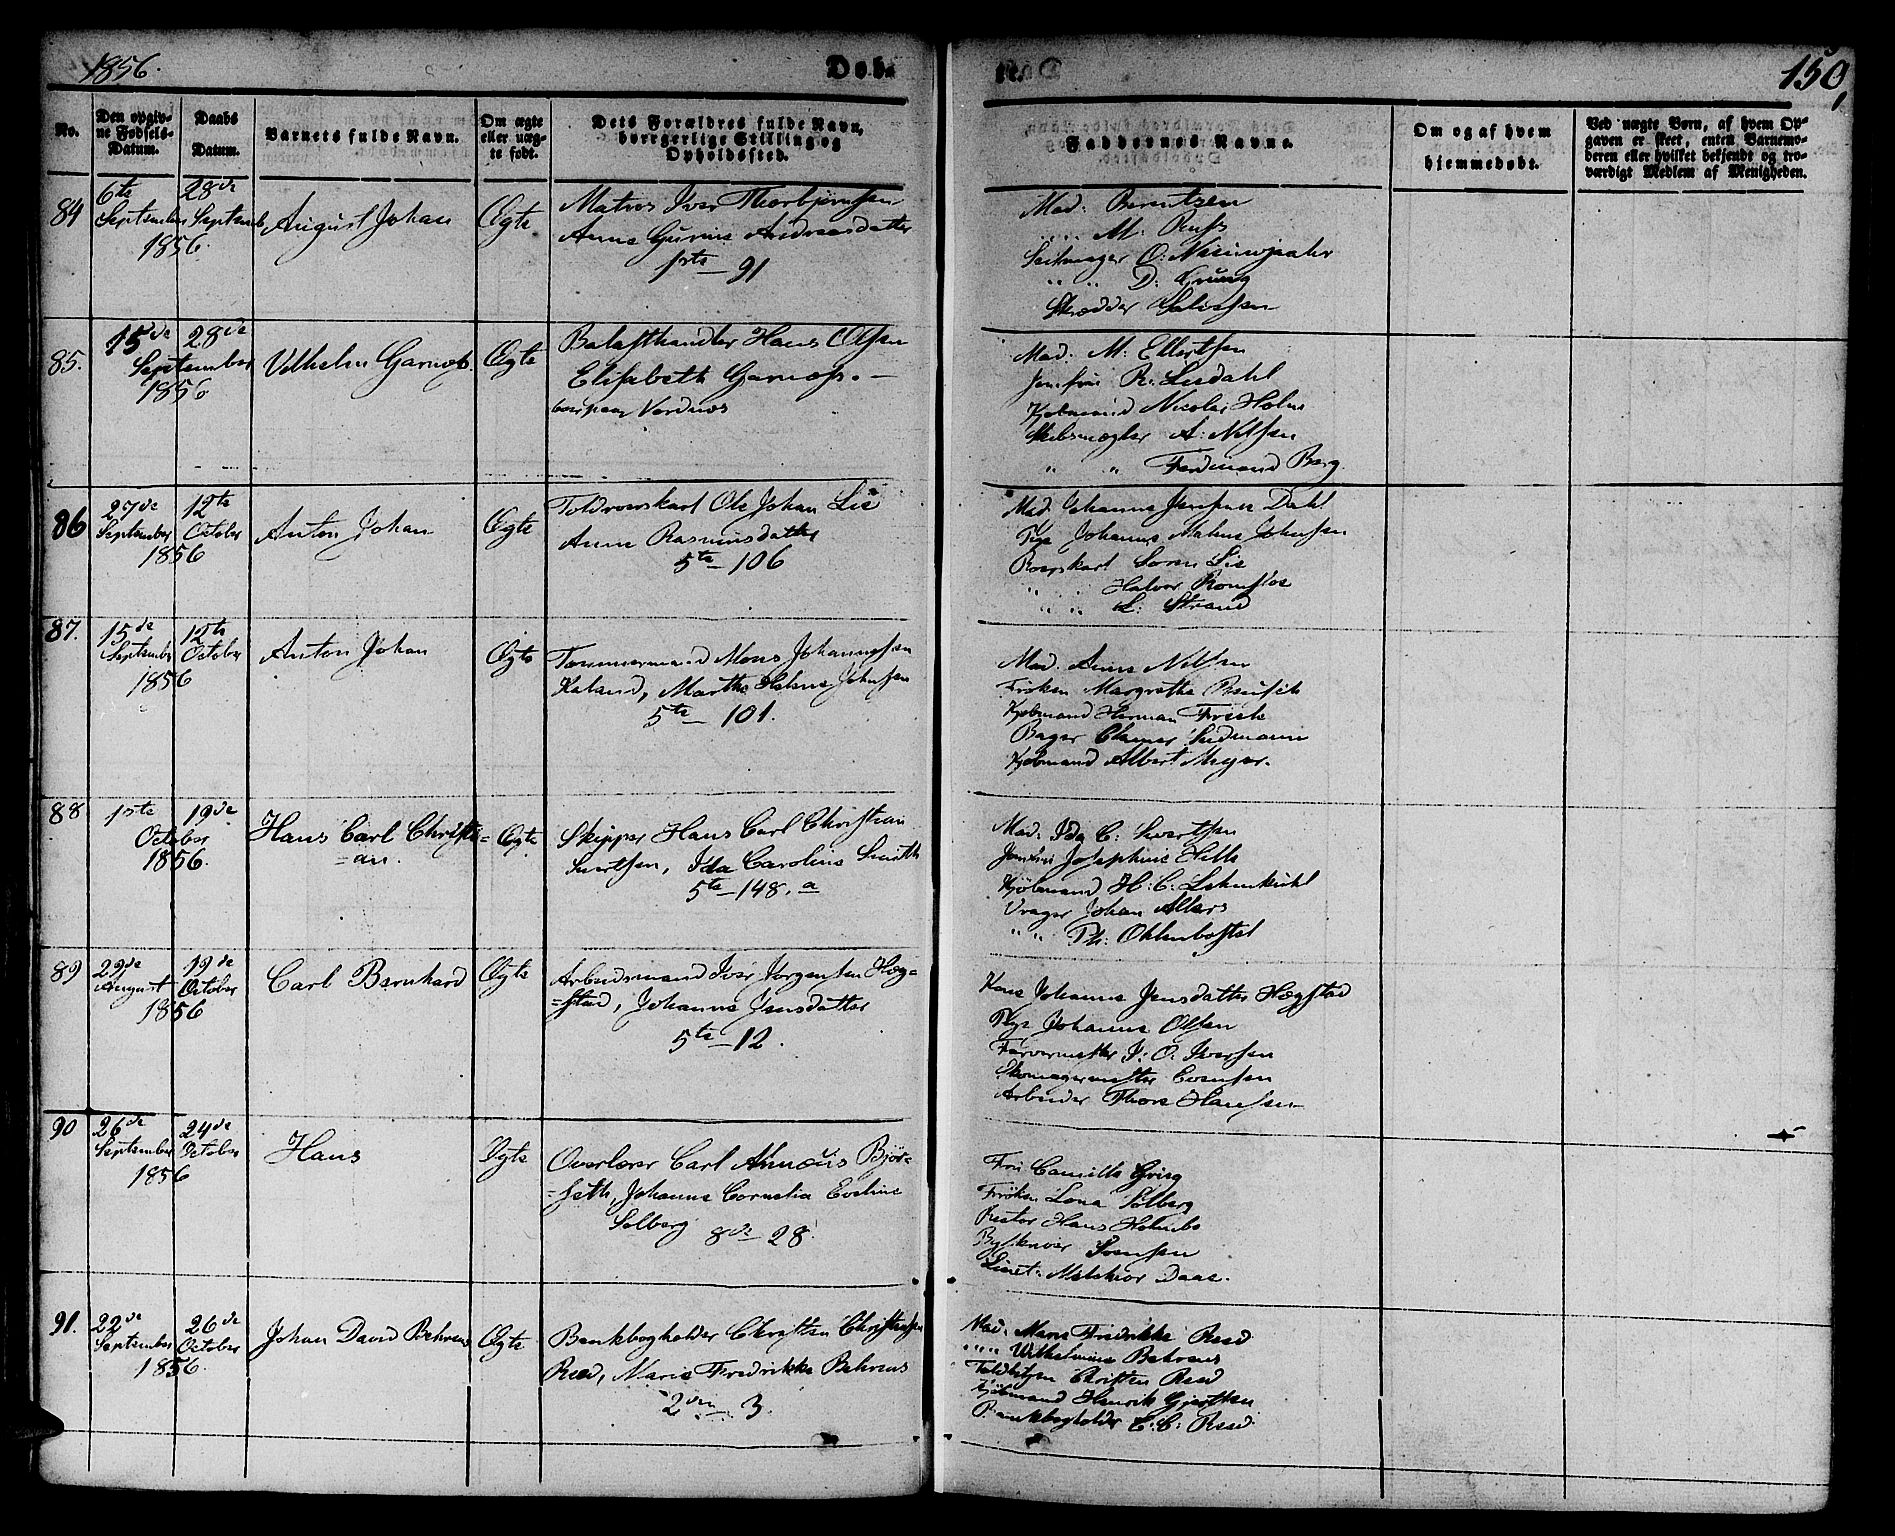 1856.
Døb-
te.
150
No.
Den opgiv-
ne Fødsels-
Datum.
Daabs
Datum.
Barnets fulde Navn.
Om ægte
eller uæg-
te født.
Dets Forældres fulde Navn,
borgerlige Stilling og
Opholdssted.
Faddernes Navne.
Om og af hvem
hjemmedøbt.
Ved uægte Børn, af hvem Op-
gaven er skeet, enten Barnemo-
deren eller hvilket bekjendt og tro-
værdigt Medlem af Menigheden.
84
6te September 1856.
28de Septemb.
August Johan
Ægte
Matros Iver Thorbjørnsen
Anne Gurine Andreasdatter
1ste - 91
Mad: Berentzen
" " M: Russ
O:
" " D: Grung
Skrædder
85.
15de September 1856
28de
Vilhelm Garnæs.
Ægte
Balasthandler Hans Olsen
Elisabeth Garnæs. -
boer paa
Mad: M: Ellertsen
Jomfru R: Lisdahl
Kjøbmand Nicolai Holm
Skibsmægler A: Nilsen
" " Ferdinand Berg
86
27de September 1856
12te October
Anton Johan
Ægte
Toldroerskarl Ole Johan Lie
Anne Rasmusdatter
5te - 106
Mad. Johanne Dahl
Pige Johanne Malene Johnsen
Roerskarl Søren Lie
" " Halvor
" " L: Strand
87.
15de September 1856
12te October
Anton Johan
Ægte
Tømmermand Mons Johannessen
Kaland, Marthe Helene Johnsen
5te - 101.
Mad. Anne Nilsen
Frøken Margrethe
Kjøbmand Herman Friele
Bager
Kjøbmand Albert Meyer.
88
1ste October 1856.
19de
Hans Carl Christi-
=an.
Ægte
Skipper Hans Carl Christian
Ida Caroline Smith
5te - 148. a
Mad: Ida C:
Jomfru Josephine Hille
Kjøbmand H: C: Lehmkuhl
Vrager Johan Ahlers
" " Th: Ohlenbostel
89
29de August 1856
19de October
Carl Bernhard
Ægte
Arbeidsmand Iver Jørgensen Hæg=
=stad, Johanne Jensdatter
5te - 12.
Kone Johanne Jensdatter Hægstad
Pige Johanne Olsen
Farvermester I: O: Iversen
Skomagermester Evensen
Arbeider Thore Hansen
90
26de September 1856
24de October
Hans
Ægte
Overlærer Carl Bjør=
=seth, Johanne Cornelia Eveline
Solberg 8de - 28.
Fru Camilla Grieg
Frøken Lona Solberg
Rector Hans Holmbo
Byskriver Svensen
Lieut: Melchior Daae.
91.
22de September 1856.
26de October
Johan David Behrens
Ægte
Bankbogholder Christen Christensen
Reed, Marie Fredrikke Behrens
2den - 3.
Mad. Marie Fredrikke Reed
" " Wilhelmine Behrens
Christen Reed
Kjøbmand Henrik Gjertsen
Bankbogholder C: C: Reed